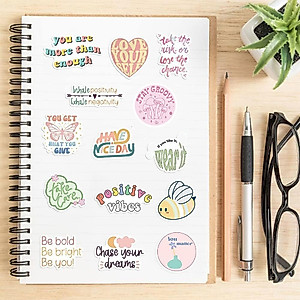 you are
more than
enough
LOVE
YOUR
SELF
take the
risk or
lose the
chance
positivity
negativity
STAY GROOVY
YOU GET
WHAT YOU
GIVE
HAVE A
NICE DAY
if you like it
wear it
take
care
Positive
vibes
Be bold
Be bright
Be you!
Chase your
dreams
you
matter